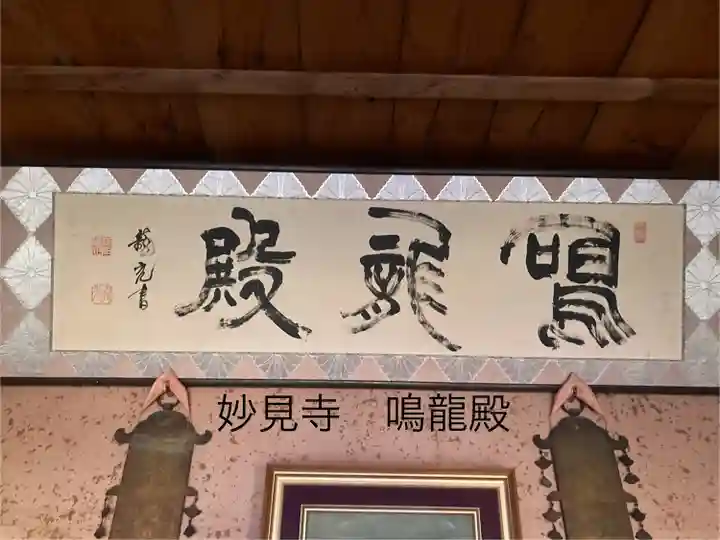 鳴龍殿
龍光書
妙見寺　鳴龍殿